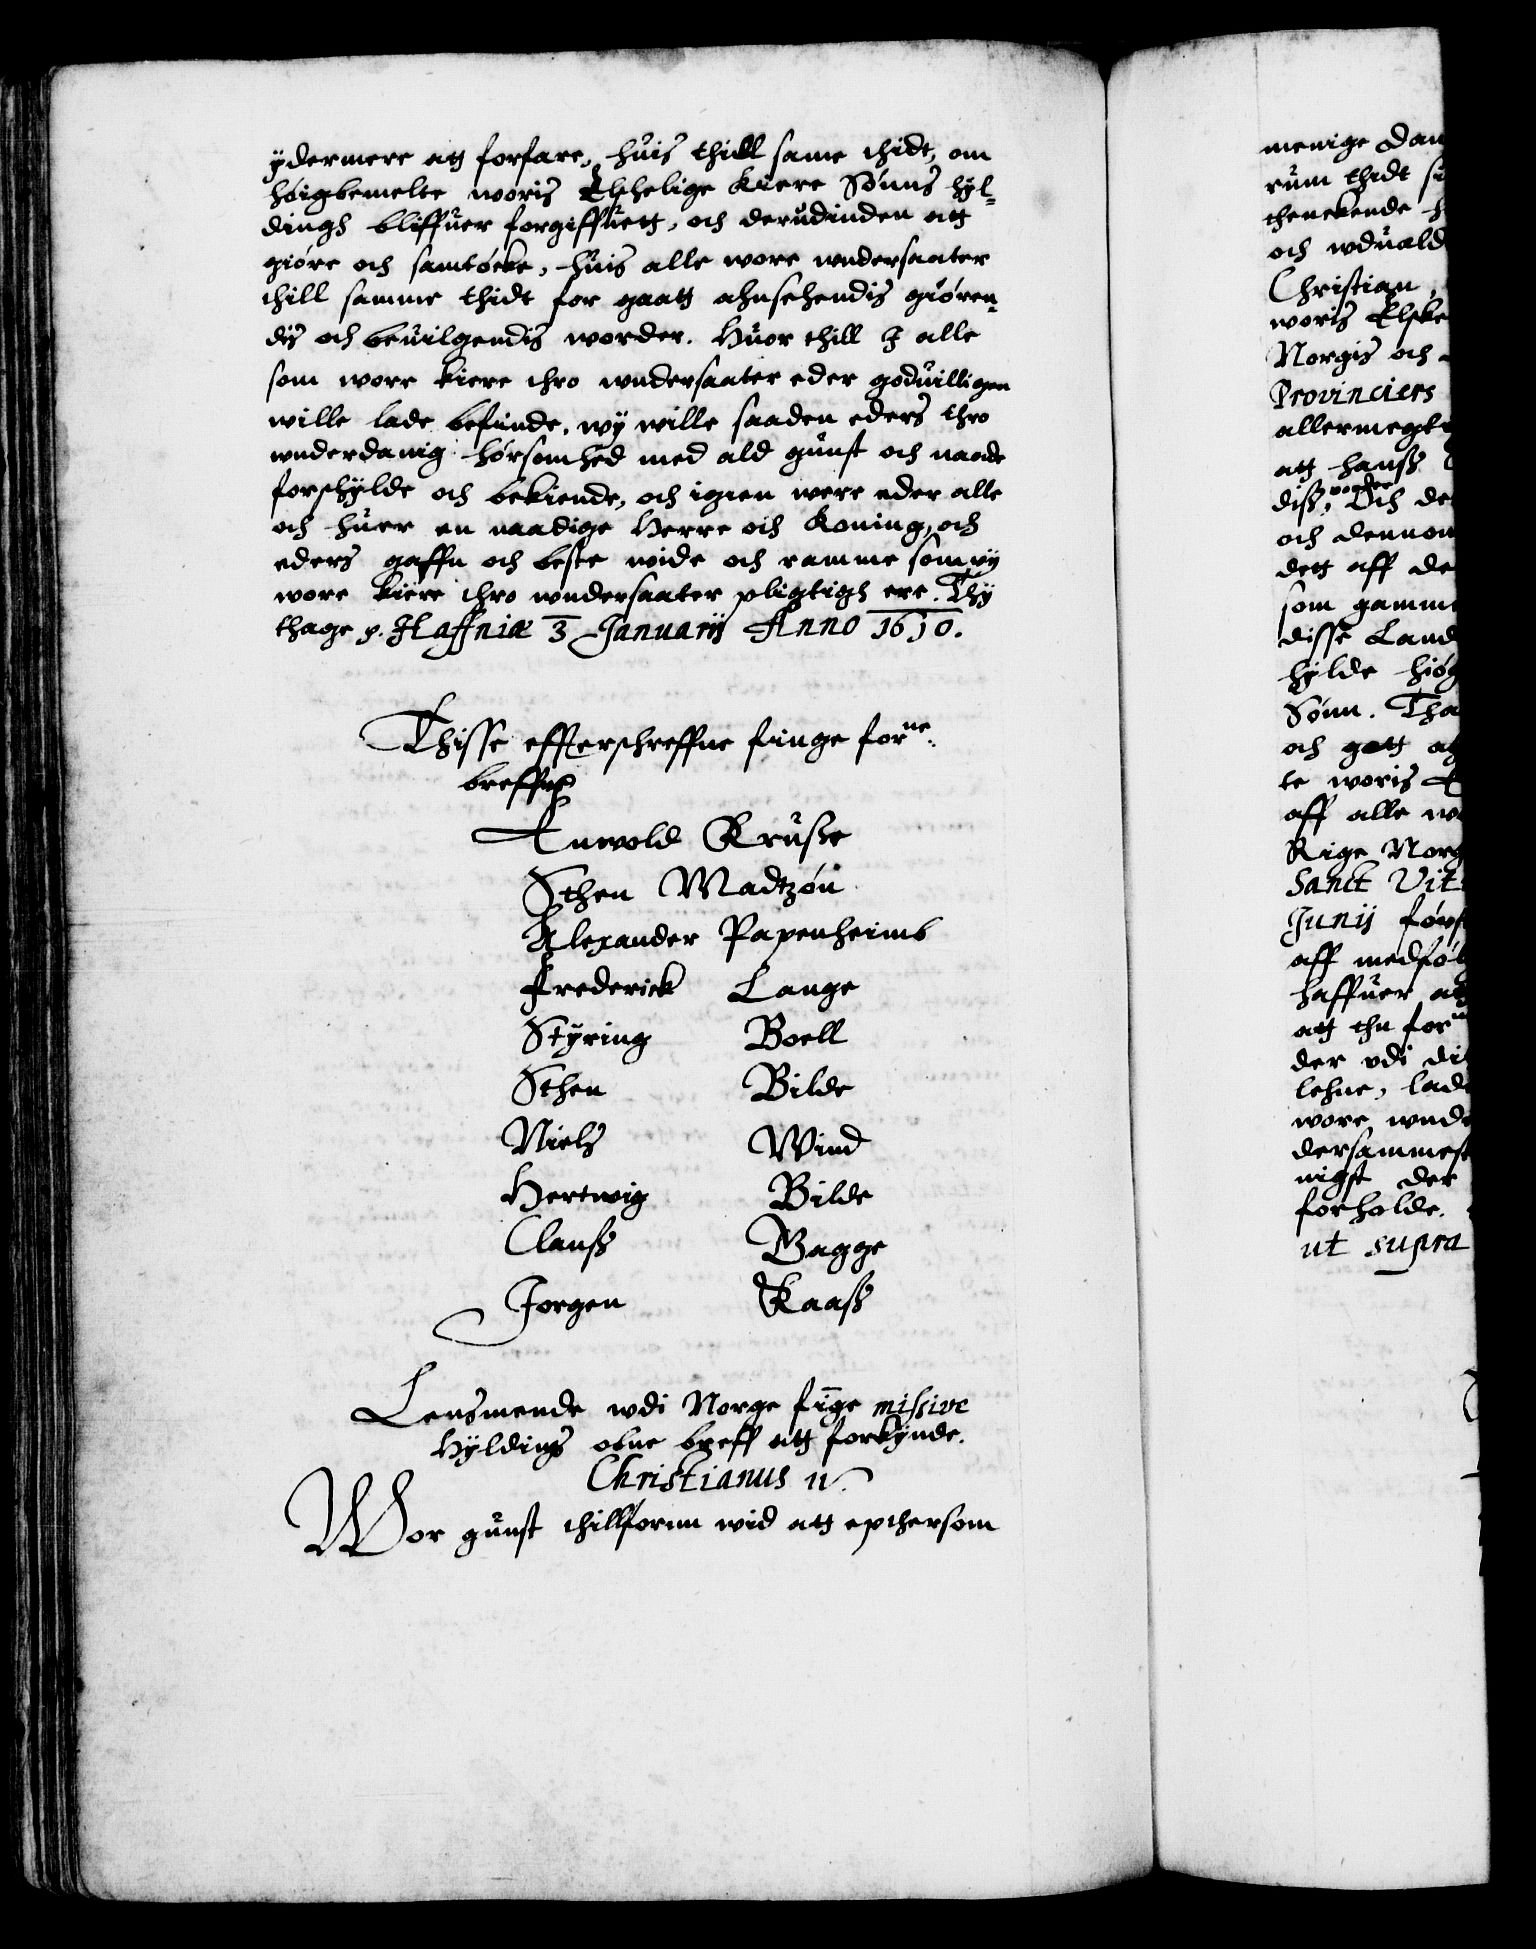 ÿdermere att forfare, huis thill same thidt, om
høigbemelte woris Elschelige kiere Sønns hÿl-
dingh bliffuer forgiffuett, och derudinden att
giøre och samtøcke, huis alle wore wndersaater
thill samme thidt for gaatt ahnsehendis giøren-
dis och beuilgendis worder. Huor thill I alle
som wore kiere thro wndersaater eder goduilligen
wille lade befinde, wÿ wille saaden eders thro
wnderdanig hørsomhed med ald gunst och naade
forschÿlde och bekiende, och igien were eder alle
och huer en naadige Herre och Koning, och
eders gaffn och beste wide och ramme som wÿ
wore kiere thro wndersaater pligtigh ere. Thÿ
thage p. Haffniæ 3 Januarij Anno 1610.
Thisse effterschreffne finge forne.
breffue
Enwold Kruse
Sthen Madtzøn
Alexander Papenheimb
Frederick Lange
Stÿring Boell
Sthen Bilde
Niels Wind
Hertwig Bilde
Clauss Bagge
Jorgen Kaass
Lensmende wdi Norge finge missive
Hÿldings obne breff att forkÿnde.
Christianus 4.
Wor gunst thillfornn wid att epthersom
menige Dan
rum thidt
thenckende
och wduald
Christian,
woris Elske
Norgis och
Provinciers
allermegti
att hanss
diss, worder Och de
och dennom
dett aff de
som gamm
disse Land
hÿlde høg
Sønn. Tha
och gott at
te woris
aff alle w
Rige Norg
Sanct Vit
Junij først
aff medføl
haffuer at
att thu forn
der vdi dit
lehne, lade
wore wnde
dersammest
nigst der
forholde.
ut supra